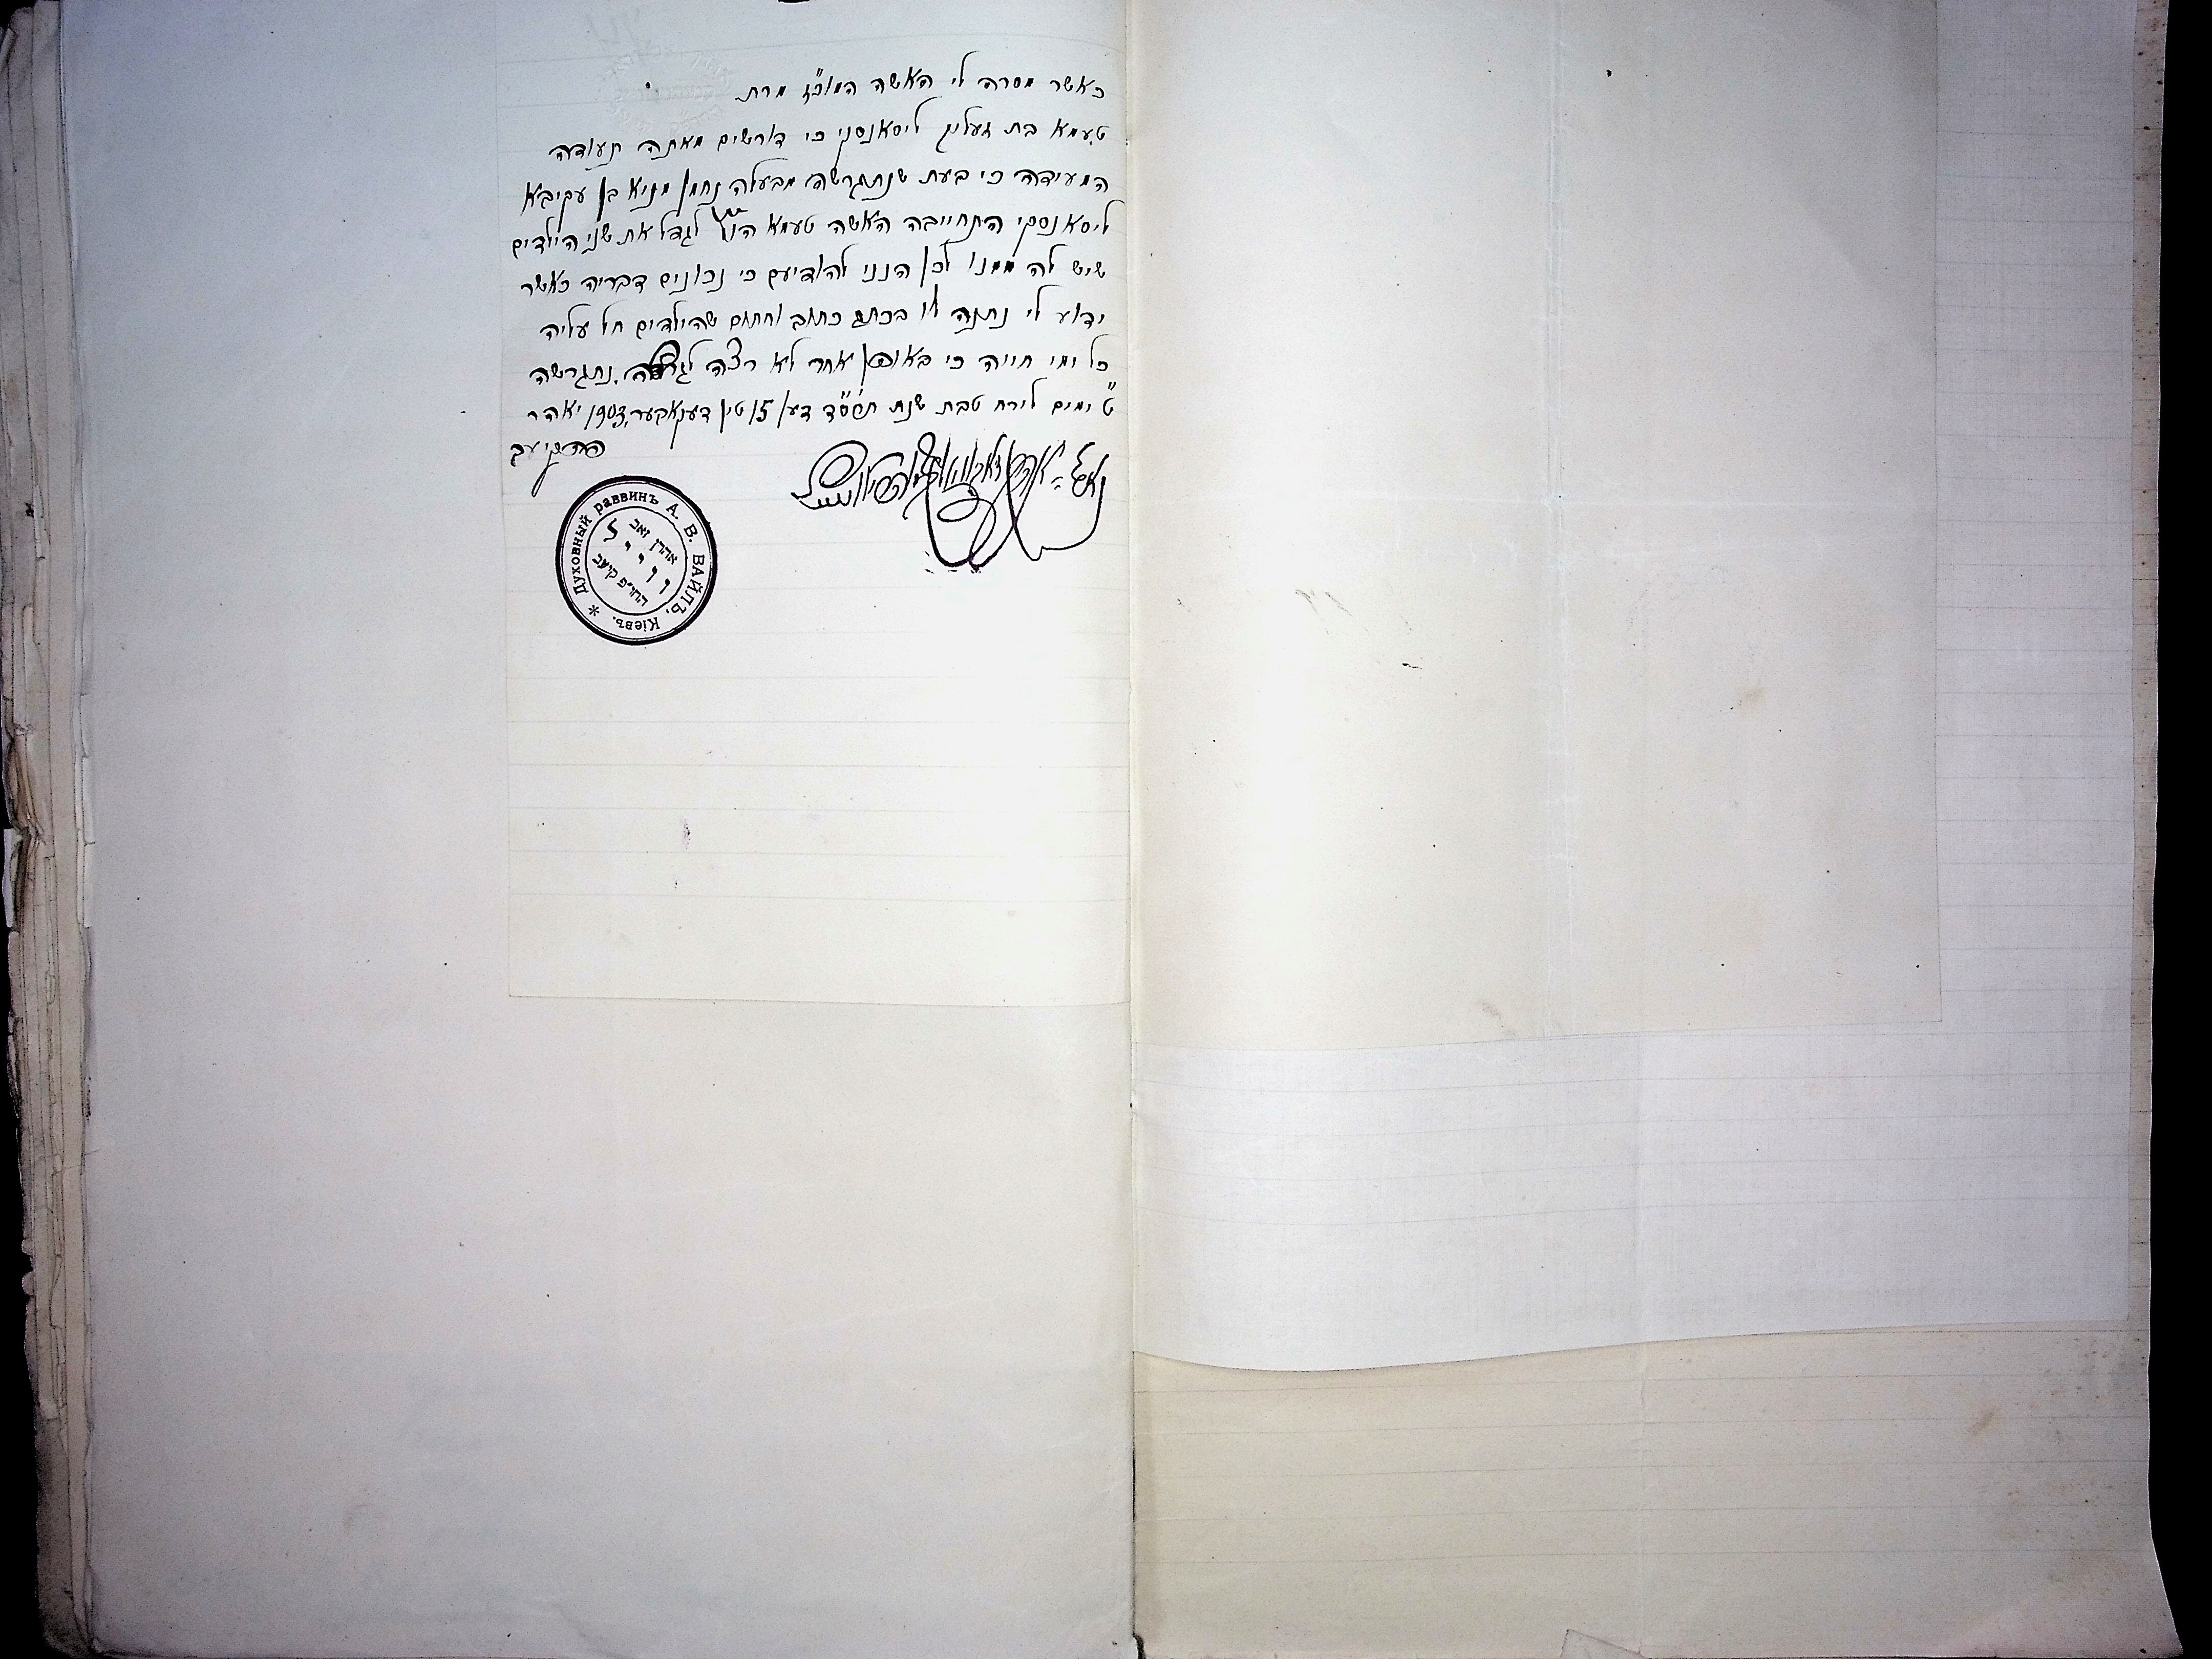 כאשר מסרה לי האשה המוכ״ז מרת
טעמא בת זעליג ליסאנסקי כי דורשים מאתה תעודה
המעידה כי בעת שנתגרשה מבעלה נחמן מניא בן עקיבא
ליסאנסקי התחייבה האשה טעמא לגדל את שני הילדים
שיש לה ממנו לכן הנני להודיעם כי נכונים דבריה כאשר
ידוע לי נתנה לו בכתב כתוב וחתום שהילדים חל עליה
כל ימי חייה כי באופן אחר לא רצה נתגרשה
ט״ ימים לירח טבת שנת תרס״ד דען 15 טין דעקאבער 1903 יאהר
פה קיעב
Духовный раввинъ А. В. ВАЙЛЬ. Кіевъ.
אהרן זאב
ווייל
החו״פ קיעב